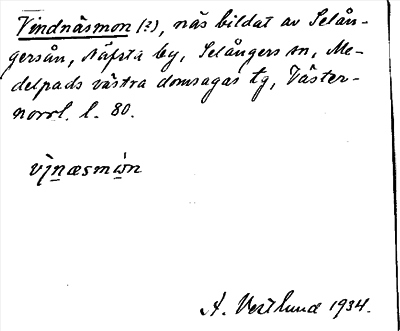 Vindnäsmon (?), näs bildat av Selån-
gersån, Näfsta by, Selångers sn, Me-
delpads västra domsagas tg, Väster-
norrl. l. 80.
vi̱næsmòn
A. Vestlund 1934.